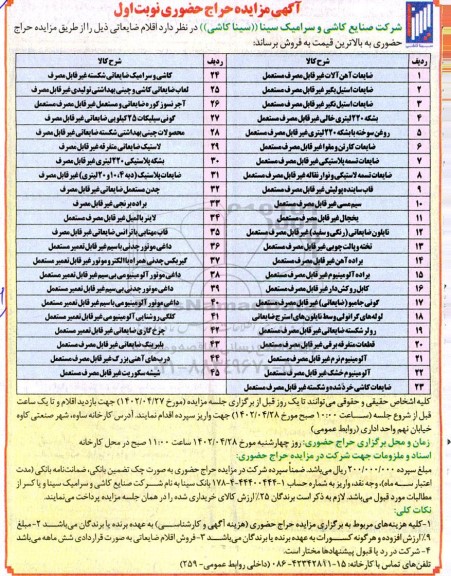 آگهی مزایده حراج حضوری نوبت اول
شرکت صنایع کاشی و سرامیک سینا ((سینا کاشی)) در نظر دارد اقلام ضایعاتی ذیل را از طریق مزایده حراج
حضوری به بالاترین قیمت به فروش برساند:
ردیف شرح کالا ردیف شرح کالا
۱ ضایعات آهن آلات غیر قابل مصرف مستعمل ۲۴ کاشی و سرامیک ضایعاتی شکسته غیر قابل مصرف
۲ ضایعات استیل بگیر غیر قابل مصرف مستعمل ۲۵ لعاب ضایعاتی کاشی و چینی بهداشتی تولیدی غیر قابل مصرف
۳ ضایعات استیل نگیر غیر قابل مصرف مستعمل ۲۶ آجر نسوز کوره ضایعاتی و مستعمل غیر قابل مصرف مستعمل
۴ بشکه ۲۲۰ لیتری خالی غیر قابل مصرف مستعمل ۲۷ گونی سیلیکات ۲۵ کیلویی ضایعاتی غیر قابل مصرف
۵ روغن سوخته با بشکه ۲۲۰ لیتری غیر قابل مصرف مستعمل ۲۸ محصولات چینی بهداشتی شکسته ضایعاتی غیر قابل مصرف
۶ ضایعات کارتن و مقوا غیر قابل مصرف مستعمل ۲۹ لاستیک ضایعاتی متفرقه غیر قابل مصرف
۷ ضایعات تسمه پلاستیکی غیر قابل مصرف مستعمل ۳۰ بشکه پلاستیکی ۲۲۰ لیتری غیر قابل مصرف
۸ ضایعات تسمه لاستیکی و نوار نقاله غیر قابل مصرف مستعمل ۳۱ ضایعات پلاستیک (دبه ۴، ۱۰ و ۲۰ لیتری) غیر قابل مصرف
۹ قاب ساینده پولیش غیر قابل مصرف مستعمل ۳۲ چدن مستعمل ضایعاتی غیر قابل مصرف
۱۰ سیم مسی غیر قابل مصرف مستعمل ۳۳ براده برنجی غیر قابل مصرف
۱۱ یخچال غیر قابل مصرف مستعمل ۳۴ لاینر بالمیل غیر قابل مصرف مستعمل
۱۲ نایلون ضایعاتی (رنگی و سفید) غیر قابل مصرف مستعمل ۳۵ قاب مهتابی با ترانس ضایعاتی غیر قابل مصرف
۱۳ تخته و پالت چوبی غیر قابل مصرف مستعمل ۳۶ داغی موتور چدنی با سیم غیر قابل تعمیر مستعمل
۱۴ براده آهن غیر قابل مصرف مستعمل ۳۷ گیربکس چدنی همراه با الکتروموتور غیر قابل تعمیر مستعمل
۱۵ براده آلومینیوم غیر قابل مصرف مستعمل ۳۸ داغی موتور آلومینیومی بی سیم غیر قابل تعمیر مستعمل
۱۶ کابل روکش دار غیر قابل مصرف مستعمل ۳۹ داغی موتور چدنی بی سیم غیر قابل تعمیر مستعمل
۱۷ گونی جامبو (ضایعاتی) غیر قابل مصرف مستعمل ۴۰ داغی موتور آلومینیومی با سیم غیر قابل تعمیر مستعمل
۱۸ لوله های کرافولی وسط نایلون های استرج ضایعاتی ۴۱ کلگی روشنایی آلومینیومی غیر قابل تعمیر مستعمل
۱۹ رولر شکسته ضایعاتی غیر قابل مصرف مستعمل ۴۲ چرخ گاری ضایعاتی غیر قابل تعمیر مستعمل
۲۰ قطعات متفرقه برقی غیر قابل مصرف مستعمل ۴۳ بلبرینگ ضایعاتی غیر قابل مصرف مستعمل
۲۱ آلومینیوم نرم غیر قابل مصرف مستعمل ۴۴ درب های آهنی بزرگ غیر قابل مصرف مستعمل
۲۲ آلومینیوم خشک غیر قابل مصرف مستعمل ۴۵ شیشه سکوریت غیر قابل مصرف مستعمل
۲۳ ضایعات کاشی خرد شده و شکسته غیر قابل مصرف
کلیه اشخاص حقیقی و حقوقی می توانند تا یک روز قبل از برگزاری جلسه مزایده (مورخ ۱۴۰۲/۰۴/۲۷) جهت بازدید اقلام و تا یک ساعت
قبل از شروع جلسه (ساعت ۱۰:۰۰ صبح مورخ ۱۴۰۲/۰۴/۲۸) جهت واریز سپرده اقدام نمایند. آدرس کارخانه ساوه، شهر صنعتی کاوه
خیابان نهم واحد اداری (روابط عمومی)
زمان و محل برگزاری حراج حضوری: روز چهارشنبه مورخ ۱۴۰۲/۰۴/۲۸ ساعت ۱۱:۰۰ صبح در محل کارخانه
اسناد و ملزومات جهت شرکت در مزایده حراج حضوری:
مبلغ سپرده ۲۰۰/۰۰۰/۰۰۰ ریال می باشد. ضمناً سپرده شرکت در مزایده حراج حضوری به صورت چک تضمین بانکی، ضمانت نامه بانکی (مدت
اعتبار سه ماه)، وجه نقد، واریز به شماره حساب ۱-۴۴۴۰۰۴۴۴-۴-۱۷۸ بانک سینا به نام شرکت صنایع کاشی و سرامیک سینا و یا کسر از
مطالبات مورد قبول می باشد. لازم به ذکر است برندگان ۲۵٪ ارزش کالای خریداری شده را در همان جلسه مزایده پرداخت می نمایند.
نکات کلی:
۱- کلیه هزینه های مربوط به برگزاری مزایده حراج حضوری (هزینه آگهی و کارشناسی) به عهده برنده یا برندگان می باشد ۲- مبلغ
۹٪ ارزش افزوده و هر گونه کسورات به عهده برنده یا برندگان می باشد ۳- فروش اقلام ضایعاتی به صورت قراردادی شش ماهه می باشد
۴- شرکت در رد یا قبول پیشنهادها مختار است.
تلفن های تماس با کارخانه: ۱۵-۴۲۳۴۲۸۱۱-۰۸۶ (داخلی روابط عمومی-۲۵۹)